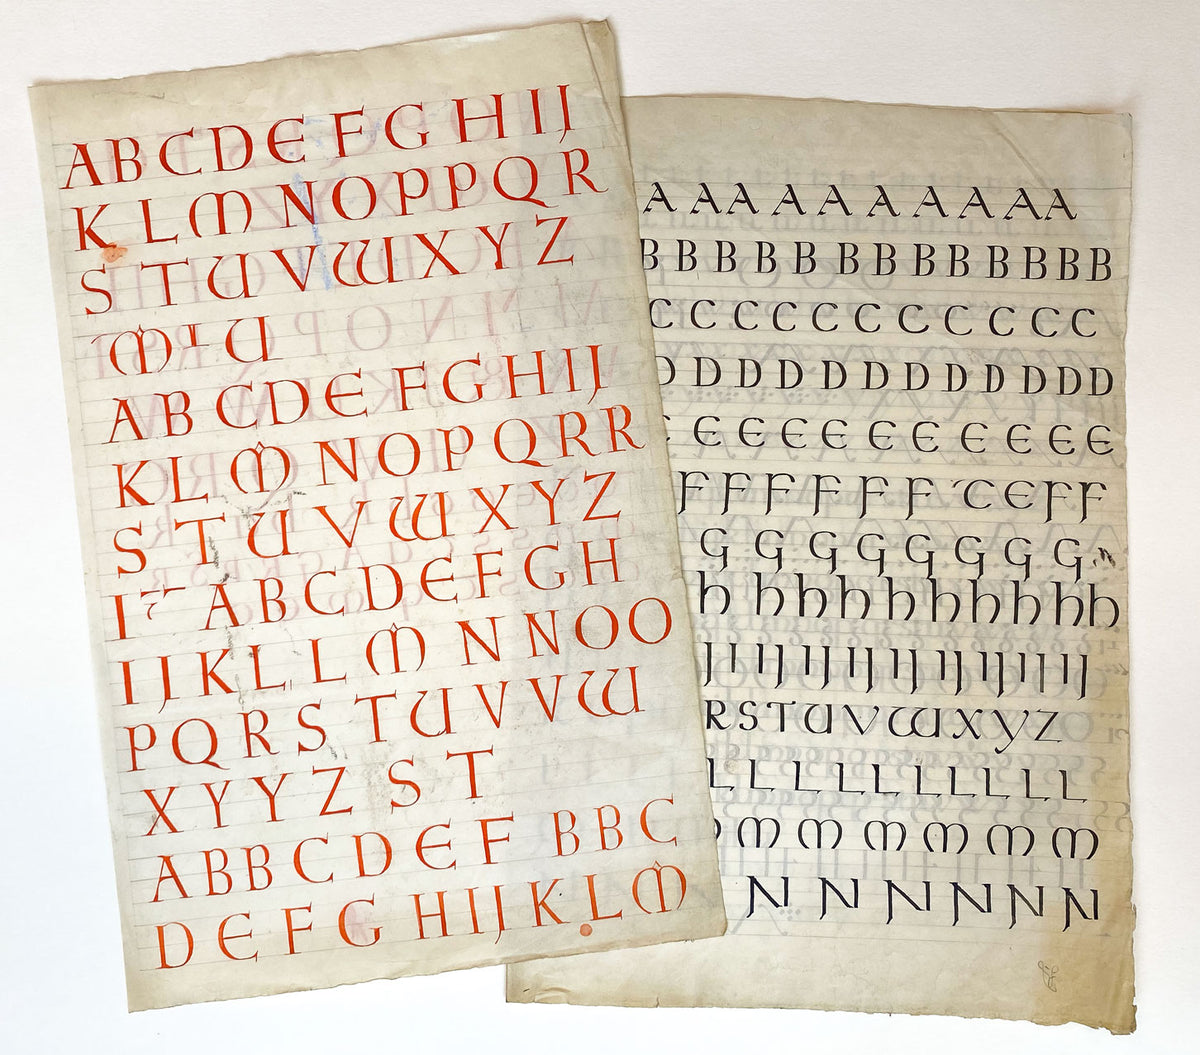 ABCDEFGHIJ
KLMNOPPQR
STUVWXYZ
M U
ABCDEFGHIJ
KLMNOPQRR
STUVWXYZ
I ABCDEFGH
IJKLLMNNOO
PQRSTUVVW
XYYZ ST
ABBCDEF BBC
DEFGHIJKLM
AAAAAAAAAA
BBBBBBBBBBBB
CCCCCCCCCCC
DDDDDDDDDDDD
EEEEEEEEEE
FFFFFF CEFF
GGGGGGGG
hhhhhhhhh
JIIJIJIJIJIJIJIIJ
RSTUVWXYZ
LLLLLLLLL
MMMMMM
NNNNNN